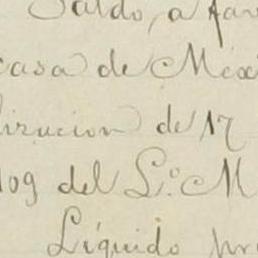 Saldo, a fav
casa de Méxi
lizacion de 17
109 del L.º M
Líquido pr